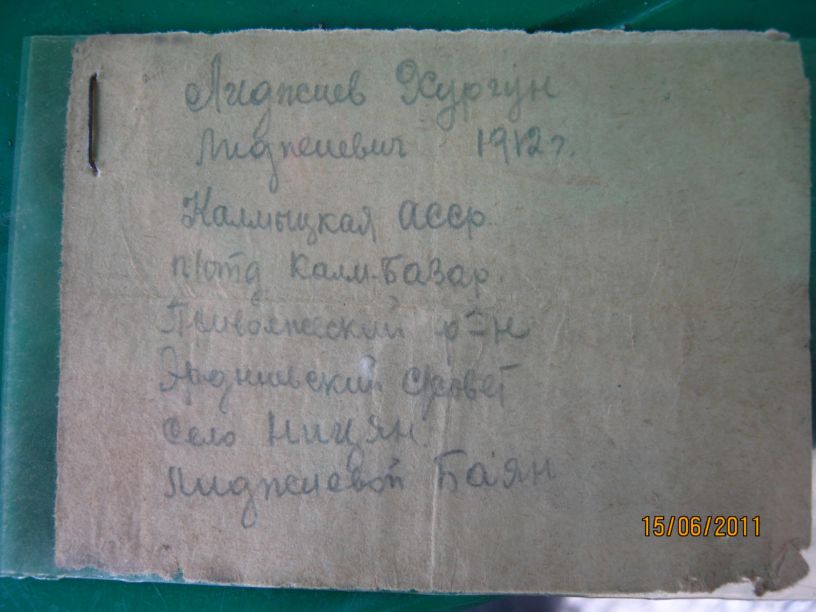 Лиджиев Хургун
Лиджиевич 1912 г.
Калмыцкая АССР.
п/отд Калм-Базар.
Приволжский р-н
Эрдниевский с/совет
Село Ницян.
Лиджиевой Баян
15/06/2011